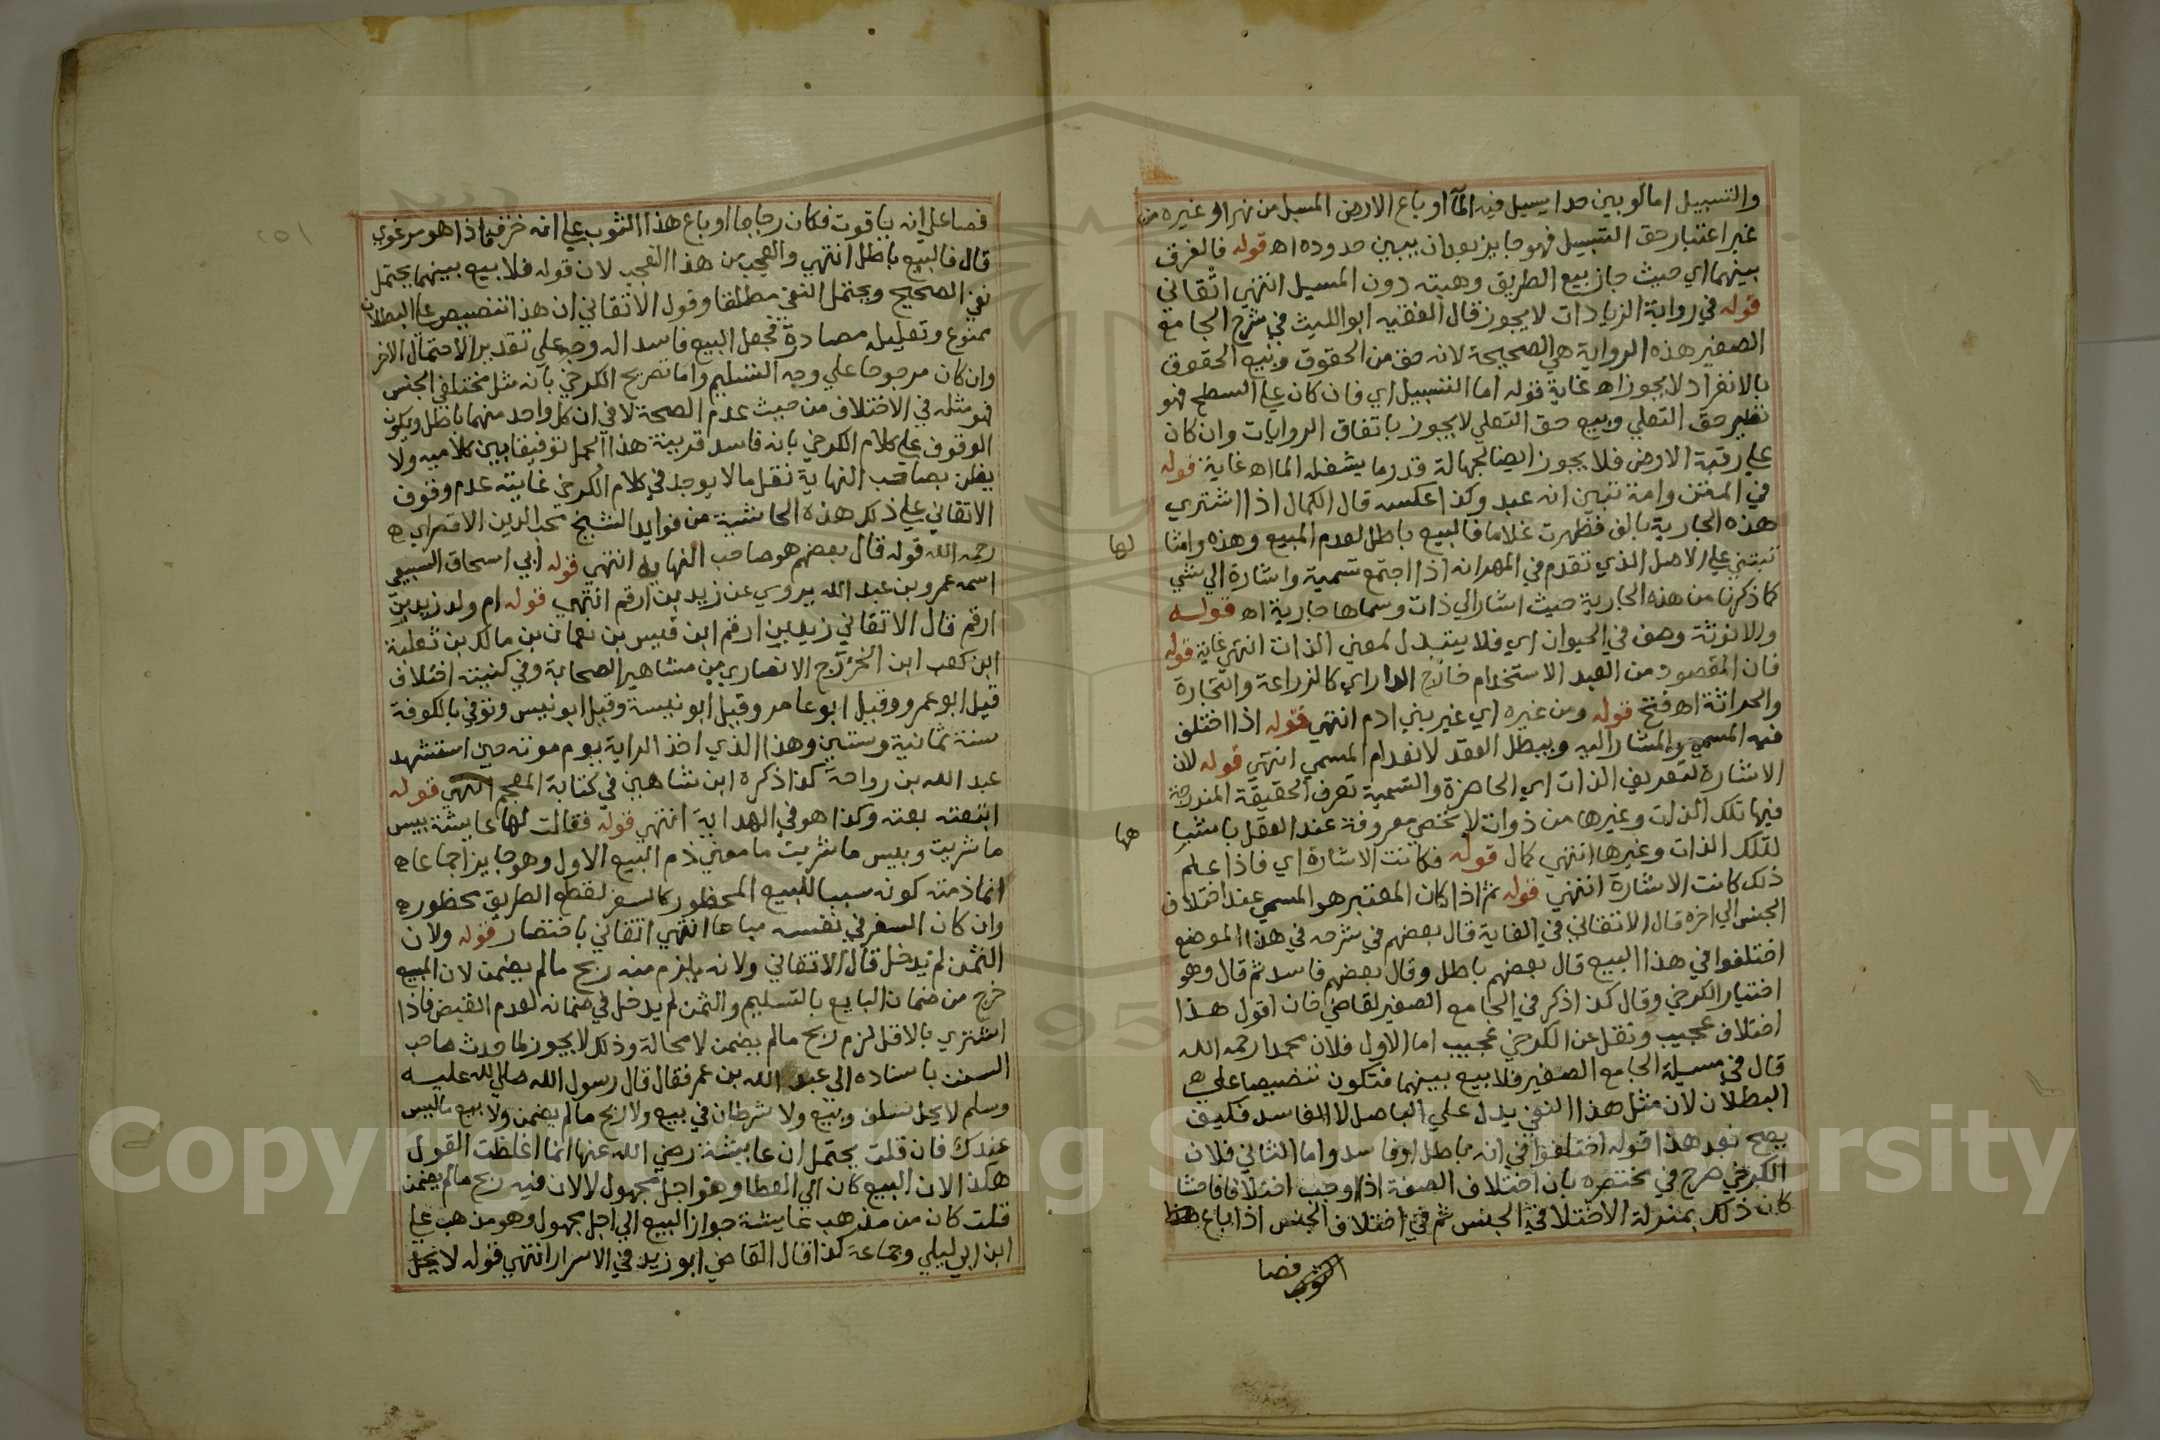 والتسبيل اما لو بين حد ا يسيل فيه المآ او باع الارض المسيل من نهر او غيره من
غير اعتبار حق التسبيل فهو جايز بعد ان يبين حدوده اه قوله فالفرق
بينهما اي حيث جاز بيع الطريق وهبته دون المسيل انتهي اتقاني
قوله في رواية الزيادات لا يجوز قال الفقيه ابو الليث في شرح الجامع
الصغير هذه الرواية هي الصحيحة لانه حق من الحقوق وبيع الحقوق
بالانفراد لا يجوز اه غاية قوله اما التسبيل اي فان كان علي السطح فهو
نظير حق التعلي وبيع حق التعلي لا يجوز باتفاق الروايات وان كان
علي رقبة الارض فلا يجوز ايضا لجهالة قدر ما يشغله الما اه غاية قوله
في المتن وامة تبين انه عبد وكذا عكسه قال الكمال اذا اشتري
هذه الجارية بالف فظهرت غلاما فالبيع باطل لعدم المبيع وهذه وامثا لها
تبتني علي الاصل الذي تقدم في المهر انه اذا اجتمع تسمية واشارة الي شي
كما ذكرنا من هذه الجارية حيث اشار الي ذات وسماها جارية اه قوله
والانوثة وصف في الحيوان اي فلا يتبدل لمعني الذات انتهي غاية قوله
فان المقصود من العبد الاستخدام خارج الدار اي كالزراعة والتجارة
والحراثة اه فتح قوله ومن غيره اي غير بني ادم انتهي قوله اذا اختلف
فيه المسمي والمشار اليه ويبطل العقد لانعدام المسمي انتهي قوله لان
الاشارة لتعريف الذات اي الحاضرة والتسمية تعرف الحقيقة المندرجة
فيها تلك الذات وغيرها من ذوات لا تحصي معروفة عند العقل باشيا هها
لتلك الذات وغيرها انتهي كمال قوله فكانت الاشارة اي فاذا علم
ذلك كانت الاشارة انتهي قوله ثم اذا كان المعتبر هو المسمي عند اختلاف
الجنس الي اخره قال الاتقاني في الغاية قال بعضهم في شرحه في هذا الموضع
اختلفوا في هذا البيع قال بعضهم باطل وقال بعضهم فاسد ثم قال وهو
اختيار الكرخي وقال كذا ذكر في الجامع الصغير لقاضي خان اقول هذا
اختلاف عجيب ونقل عن الكرخي عجيب اما الاول فلان محمدا رحمه الله
قال في مسيلة الجامع الصغير فلا بيع بينهما فتكون تنصيصا علي
البطلان لان مثل هذا النفي يدل علي الباطل لا الفاسد فكيف
يصح بعد هذا قوله اختلفوا في انه باطل او فاسد واما الثاني فلان
الكرخي صرح في مختصره بان اختلاف الصفة اذا اوجب اختلافا فاحشا
كان ذلك بمنزلة الاختلاف في الجنس ثم في اختلاف الجنس اذا باع هذا
فصا
فصا علي انه ياقوت فكان زجاجا او باع هذا الثوب علي انه خز فاذا هو مرغوي
قال فالبيع باطل انتهي والعجب من هذا العجب لان قوله فلا بيع بينهما يحتمل
نفي الصحيح ويحتمل النفي مطلقا وقول الاتقاني ان هذا تنصيص علي البطلان
ممنوع وتعليله مصادرة فجعل البيع فاسدا له وجه علي تقدير الاحتمال الاخر
وان كان مرجوحا علي وجه التسليم واما تصريح الكرخي بانه مثل مختلفي الجنس
فهو مثله في الاختلاف من حيث عدم الصحة لا في ان كل واحد منهما باطل ويكون
الوقوف علي كلام الكرخي بانه فاسد قرينة هذا الحمل توفيقا بين كلاميه ولا
يظن بصاحب النهاية نقل ما لا يوجد في كلام الكرخي غايته عدم وقوف
الاتقاني علي ذلك هذه الحاشية من فوايد الشيخ محب الدين الاقصراي
رحمه الله قوله قال بعضهم هو صاحب النهاية انتهي قوله ابي اسحاق السبيعي
اسمه عمرو بن عبد الله يروي عن زيد بن ارقم انتهي قوله ام ولد زيد بن
ارقم قال الاتقاني زيد بن ارقم ابن قيس بن نعمان بن مالك بن ثعلبة
ابن كعب ابن الخزرج الانصاري من مشاهير الصحابة وفي كنيته اختلاف
قيل ابو عمرو وقيل ابو عامر وقيل ابو نيسة وقيل ابو نيس وتوفي بالكوفة
سنة ثمانية وستين وهذا الذي اخذ الراية يوم موته حين استشهد
عبد الله بن رواحة كذا ذكره ابن شاهين في كتابة المعجم انتهي قوله
ابتعته بعته وكذا هو في الهداية انتهي قوله فقالت لها عايشة بيس
ما شريت وبيس ما شريت ما معني ذم البيع الاول وهو جايز اجماعا
انما ذمته كونه سببا للبيع المحظور كالسفر لقطع الطريق محظور
وان كان السفر في نفسه مباحا انتهي اتقاني باختصار قوله ولان
الثمن لم يدخل قال الاتقاني ولانه يلزم منه ربح ما لم يضمن لان المبيع
خرج من ضمان البايع بالتسليم والثمن لم يدخل في ضمانه لعدم القبض فاذا
اشتري بالاقل لزم ربح ما لم يضمن لا محالة وذلك لا يجوز لما حدث صاحب
السنن باسناده الي عبد الله بن عمر فقال قال رسول الله صلي الله عليه
وسلم لا يحل سلف وبيع ولا شرطان في بيع ولا ربح ما لم يضمن ولا بيع ما ليس
عندك فان قلت يحتمل ان عايشة رضي الله عنها انما اغلظت القول
هكذا لان البيع كان الي العطا وهو اجل مجهول لا لان فيه ربح ما لم يضمن
قلت كان من مذهب عايشة جواز البيع الي اجل مجهول وهو مذهب علي
ابن ابي ليلي وجماعة كذا قال القاضي ابو زيد في الاسرار انتهي قوله لا يحل